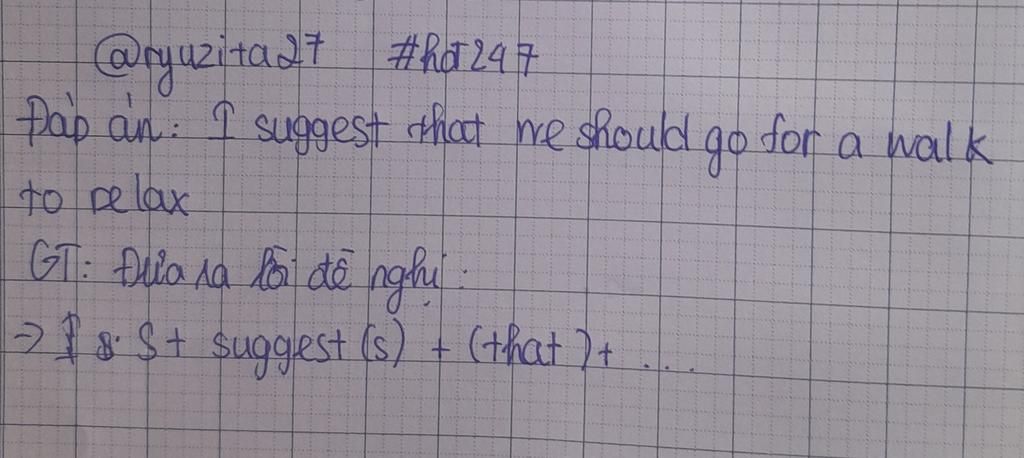 @ryuzita27 #hdt247
Đáp án: I suggest that we should go for a walk
to relax
GT: Đưa ra lời đề nghị:
=> S + suggest(s) + (that) + ...